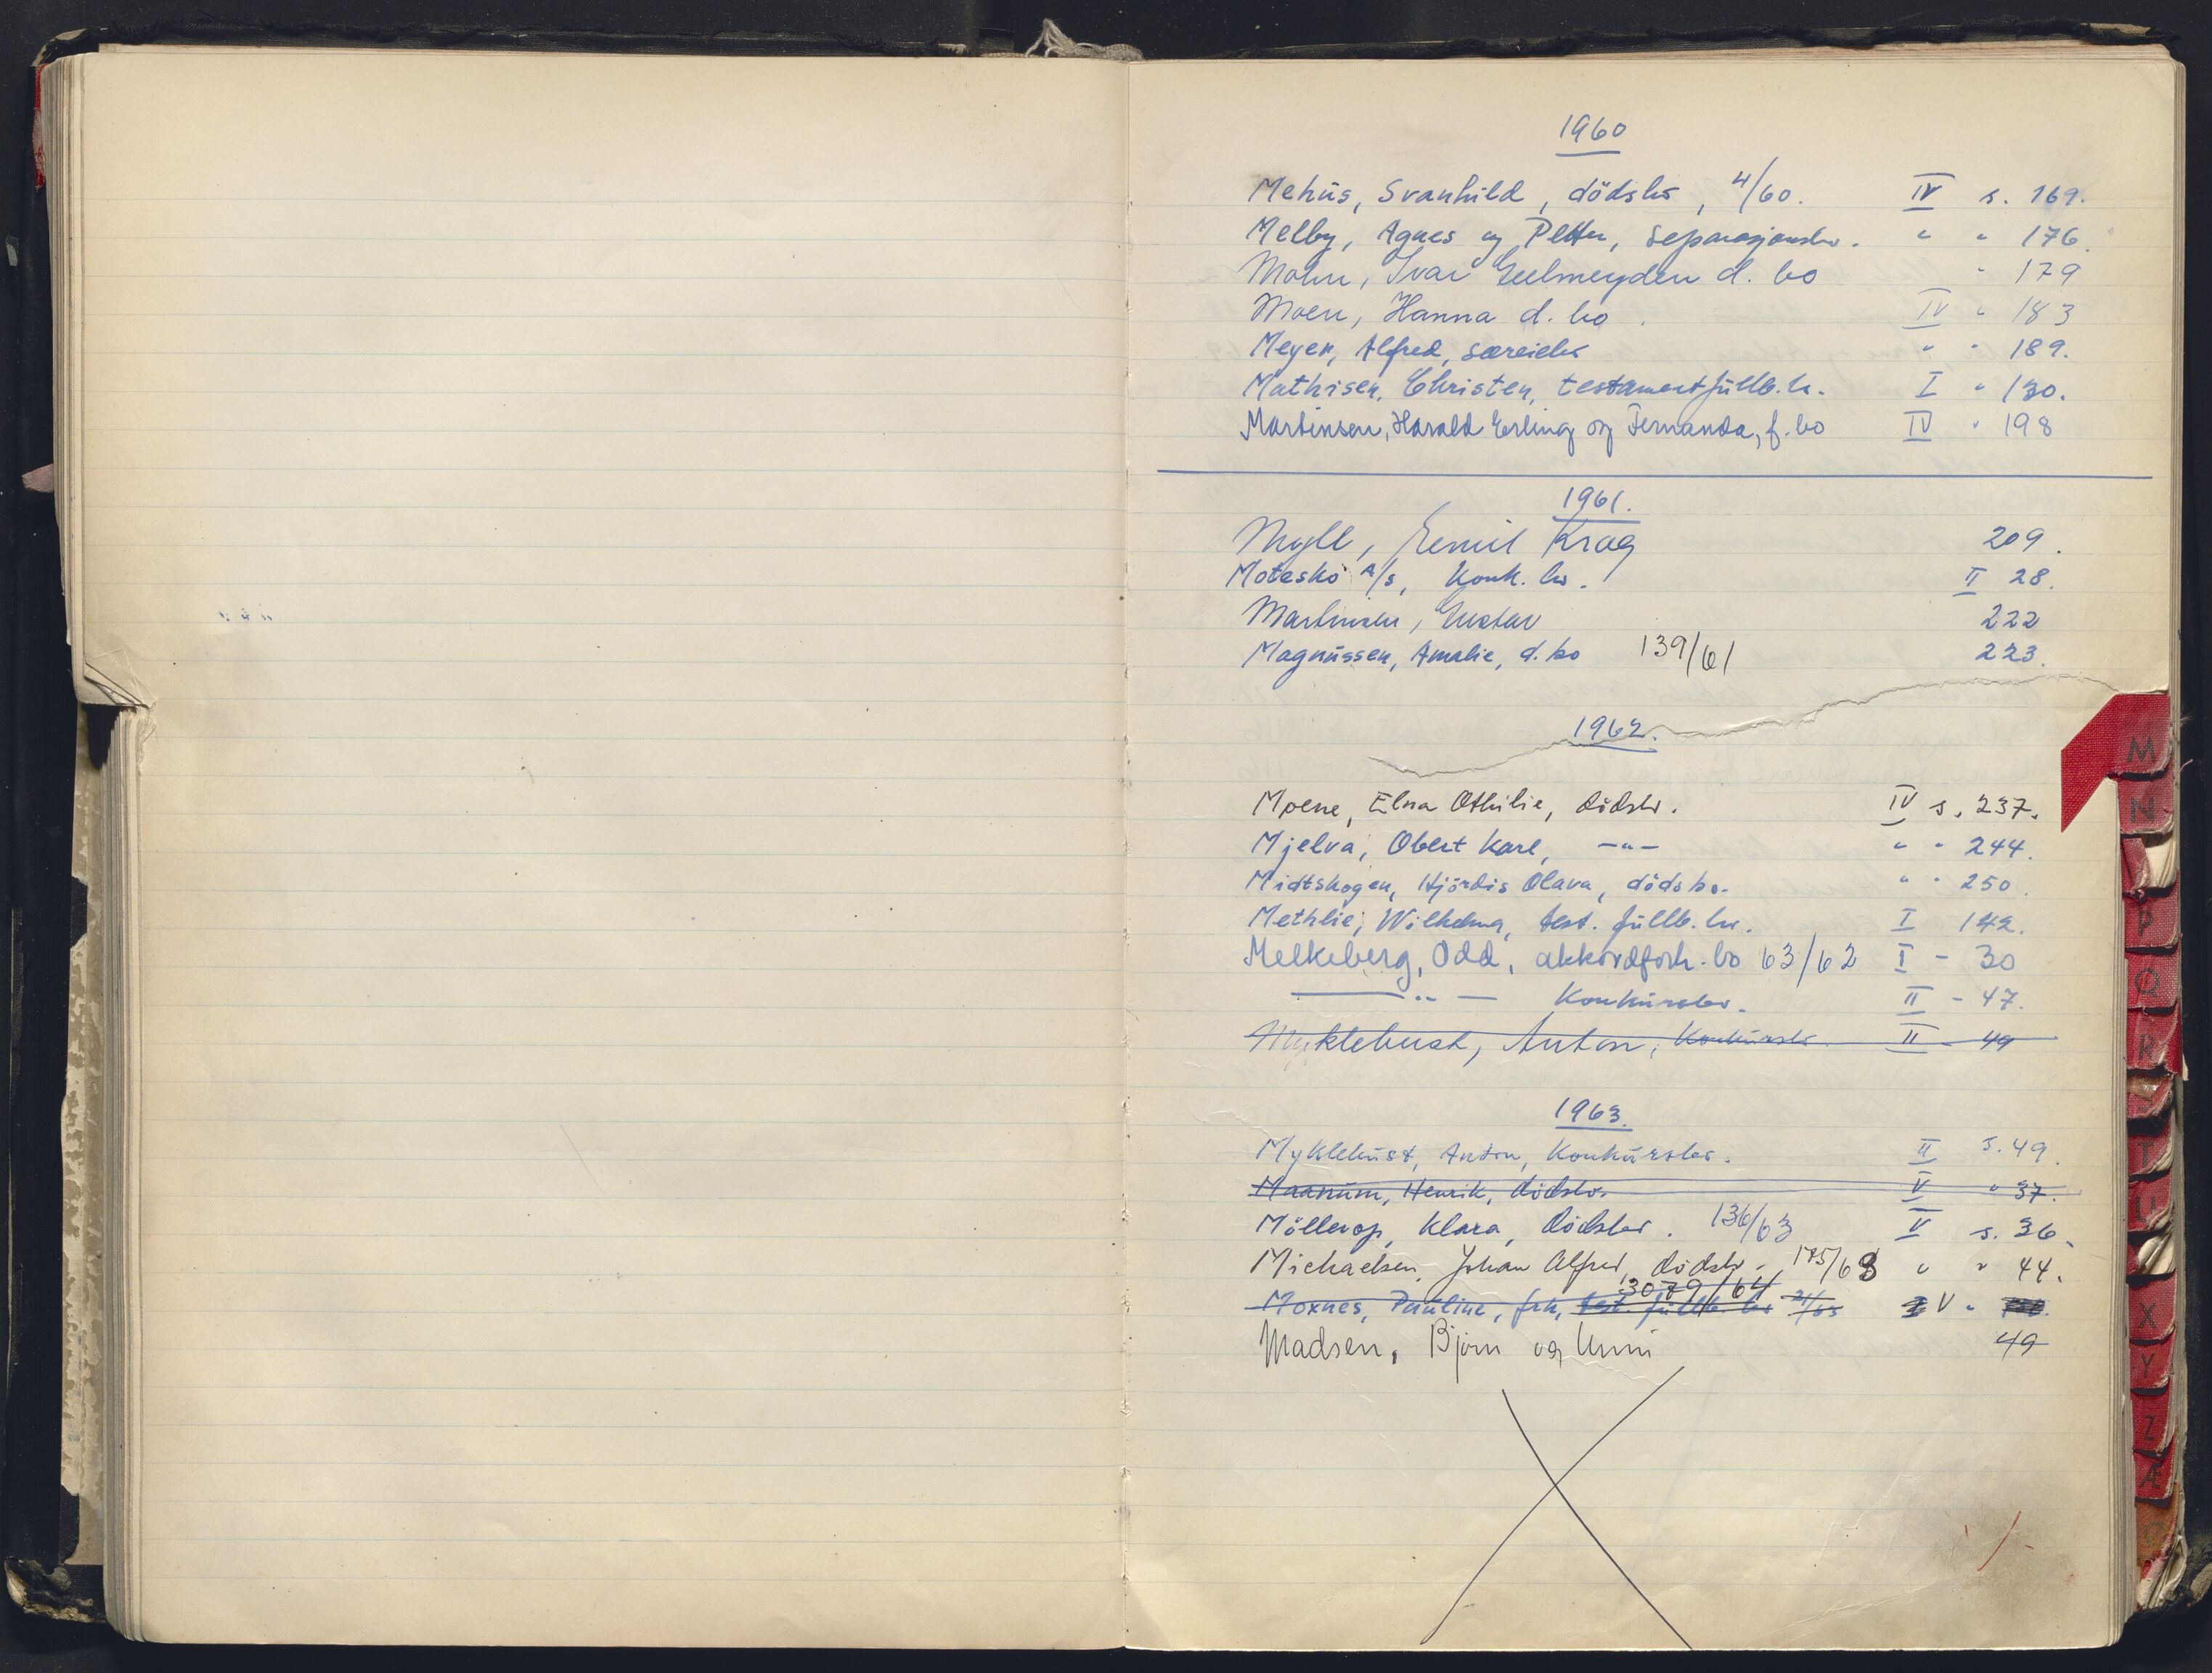 1960
Mehüs, Svanhild, dödsbo, 4/60. IV s. 169.
Melby, Agnes og Petter, separasjonsbo. " " 176.
Mohn, Ivar Geelmeyden d. bo " 179
Moen, Hanna d. bo. IV " 183
Meyer, Alfred, særeiebo " " 189.
Mathisen, Christen, testamentfüllb.bo. I " 130.
Martinsen, Harald Erling og Fernanda, f. bo IV " 198
1961.
Myll, Emil Krag 209.
Motesko A/s, Konk. bo. II 28.
Martinsen, Gustav 222
Magnüssen, Amalie, d. bo 139/61 223.
1962.
Moene, Elna Othilie, dödsbo. IV s. 237.
Mjelva, Obert Karl, -"- " " 244.
Midtskogen, Hjördis Olava, dödsbo. " " 250.
Methlie, Wilhelma, test. füllb. bo. I 142.
Melkeberg, Odd, akkordforh. bo 63/62 I - 30
— " — Konkürsbo. II - 47.
Myklebust, Anton, Konkürsbo II - 49
1963.
Myklebüst, Anton, Konkürsbo. II s. 49.
Maanüm, Henrik, dödsbo. V " 37.
Möllerop, Klara, dödsbo. 136/63 V s. 36.
Michaelsen, Johan Alfred, dödsbo. 185/63 " " 44.
3079/64
Moxnes, Paüline, frk, test. füllb. bo 21/63 V "
Madsen, Bjørn og Unni 49
M
N
P
Q
R
T
U
X
Y
Z
Æ